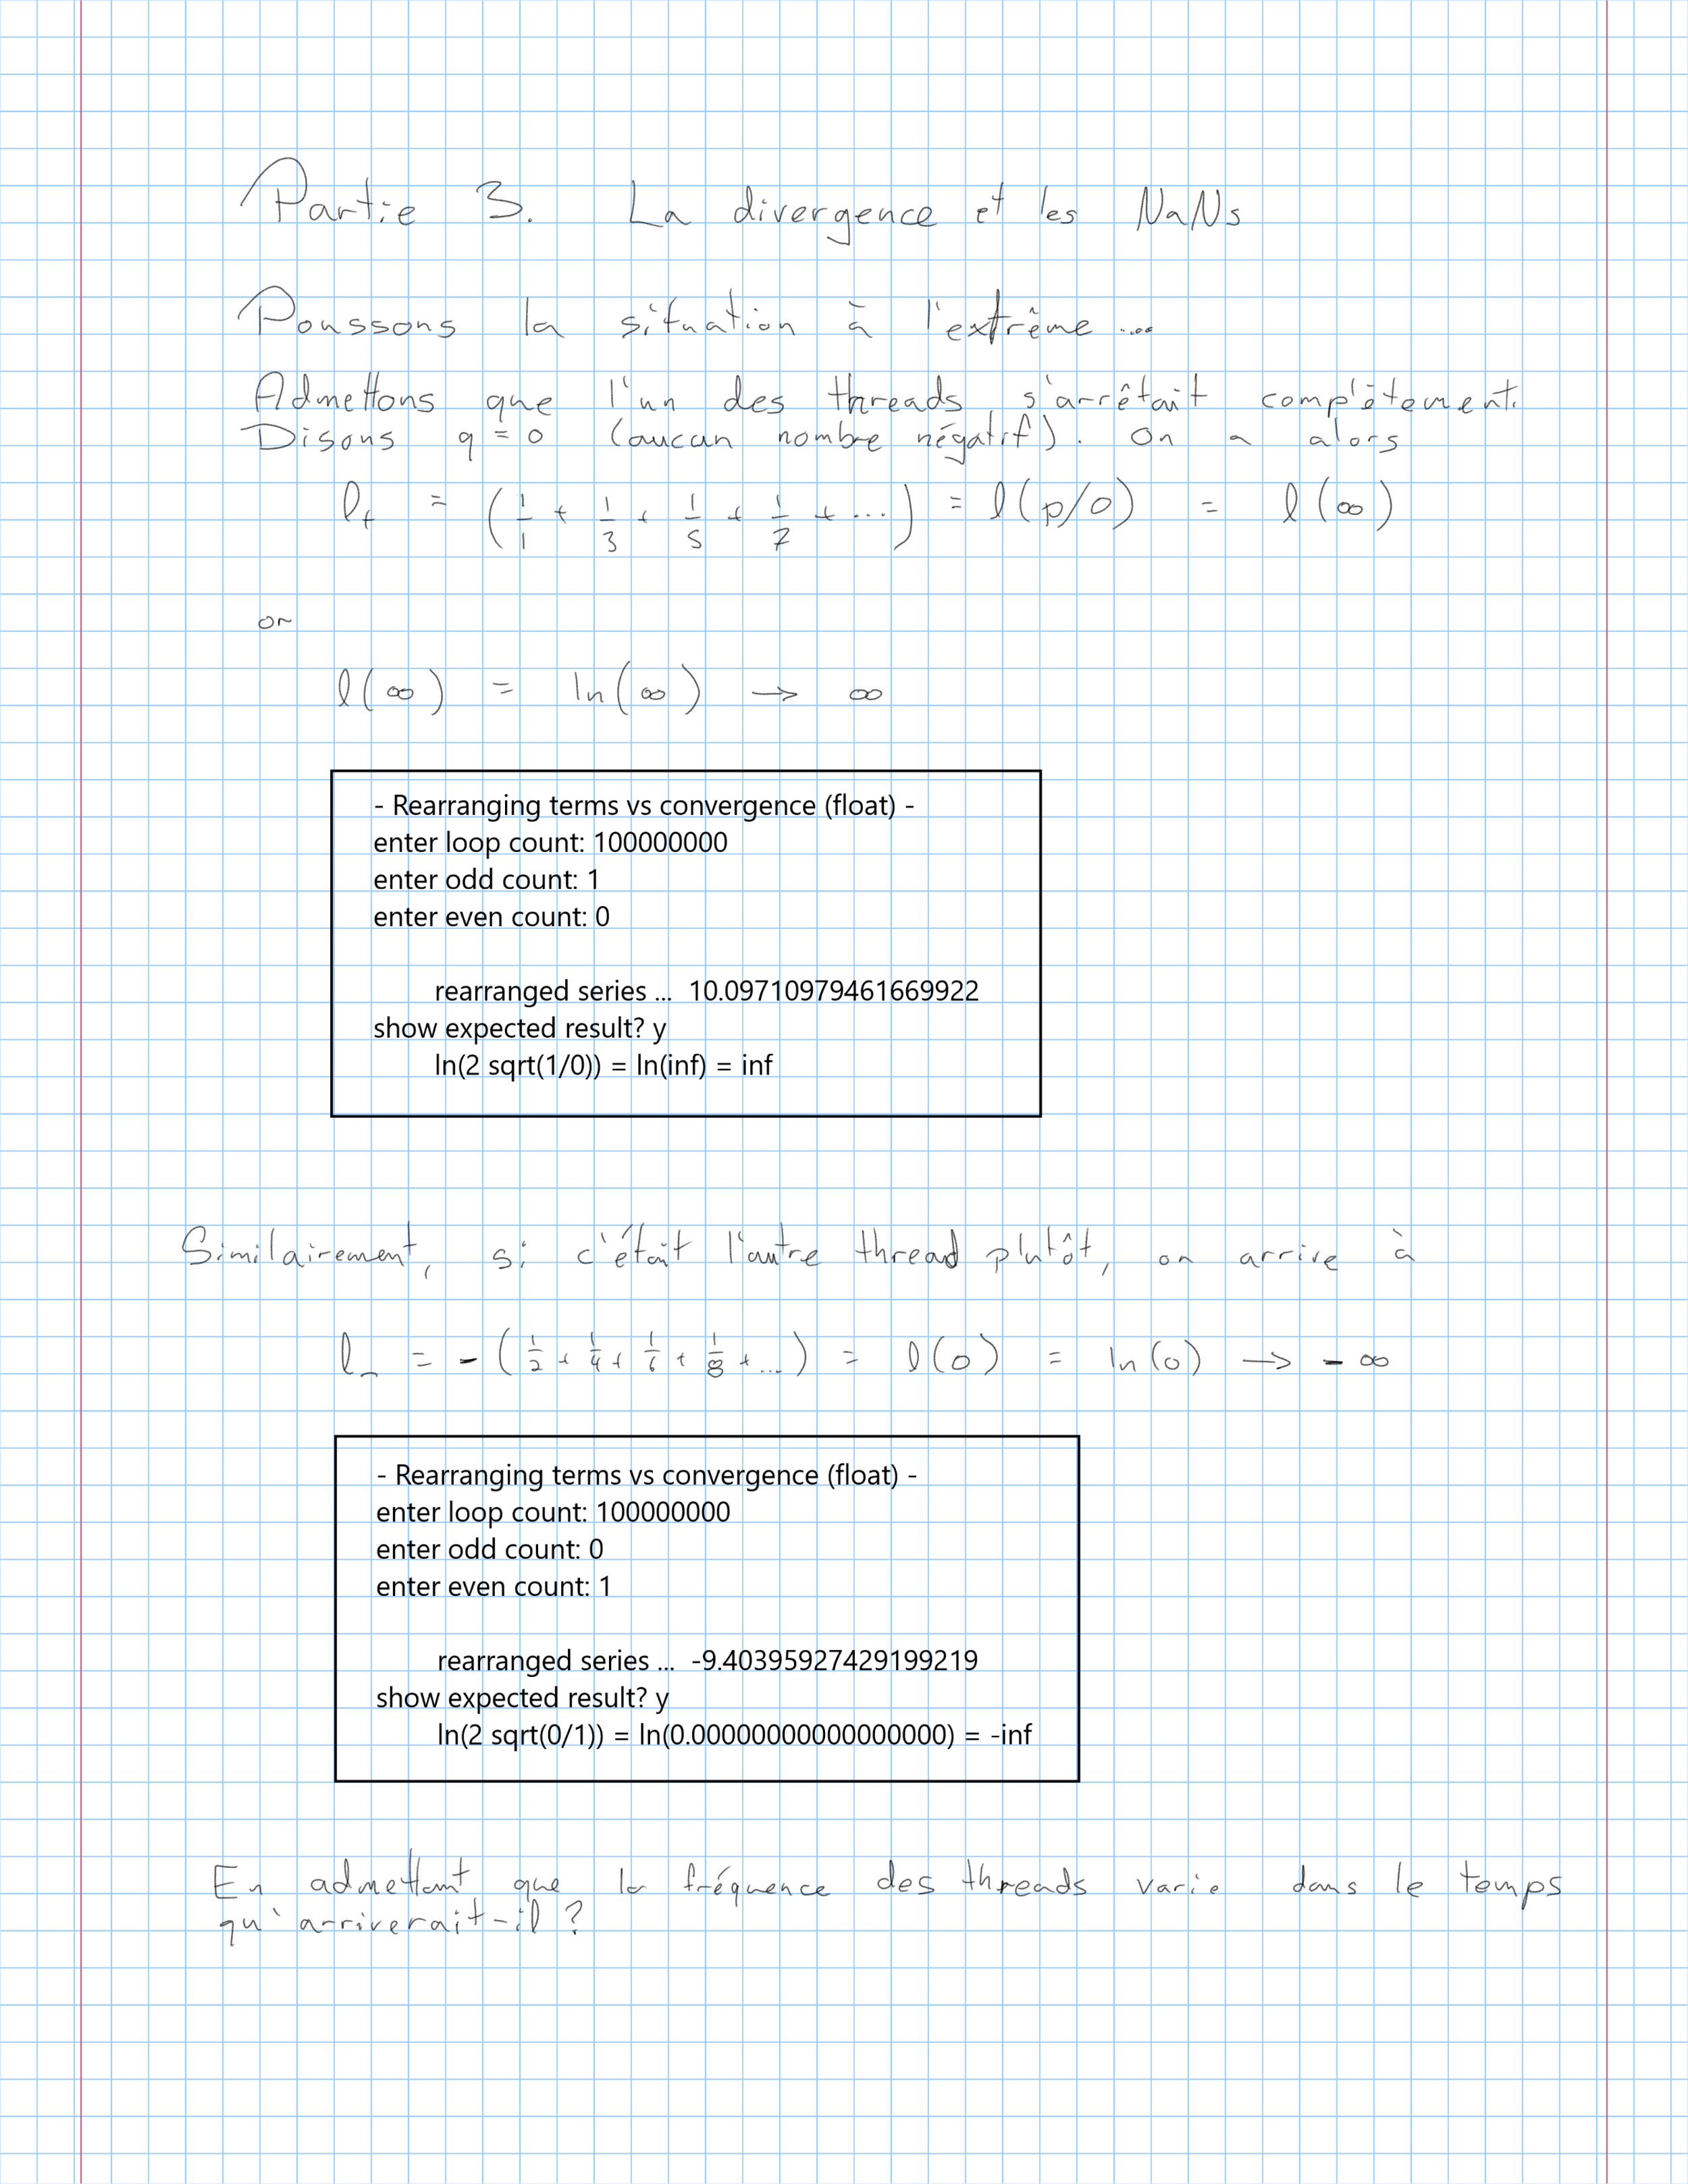 Partie 3. La divergence et les NaNs
Poussons la situation à l'extrême ....
Admettons que l'un des threads s'arrêtait complètement.
Disons q = 0 (aucun nombre négatif). On a alors
l₊ = (1/1 + 1/3 + 1/5 + 1/7 + ...) = l(p/0) = l(∞)
or
l(∞) = ln(∞) → ∞
- Rearranging terms vs convergence (float) -
enter loop count: 100000000
enter odd count: 1
enter even count: 0
rearranged series ... 10.09710979461669922
show expected result? y
ln(2 sqrt(1/0)) = ln(inf) = inf
Similairement, si c'était l'autre thread plutôt, on arrive à
l₋ = - (1/2 + 1/4 + 1/6 + 1/8 + ...) = l(0) = ln(0) → - ∞
- Rearranging terms vs convergence (float) -
enter loop count: 100000000
enter odd count: 0
enter even count: 1
rearranged series ... -9.40395927429199219
show expected result? y
ln(2 sqrt(0/1)) = ln(0.00000000000000000) = -inf
En admettant que la fréquence des threads varie dans le temps
qu'arriverait-il ?